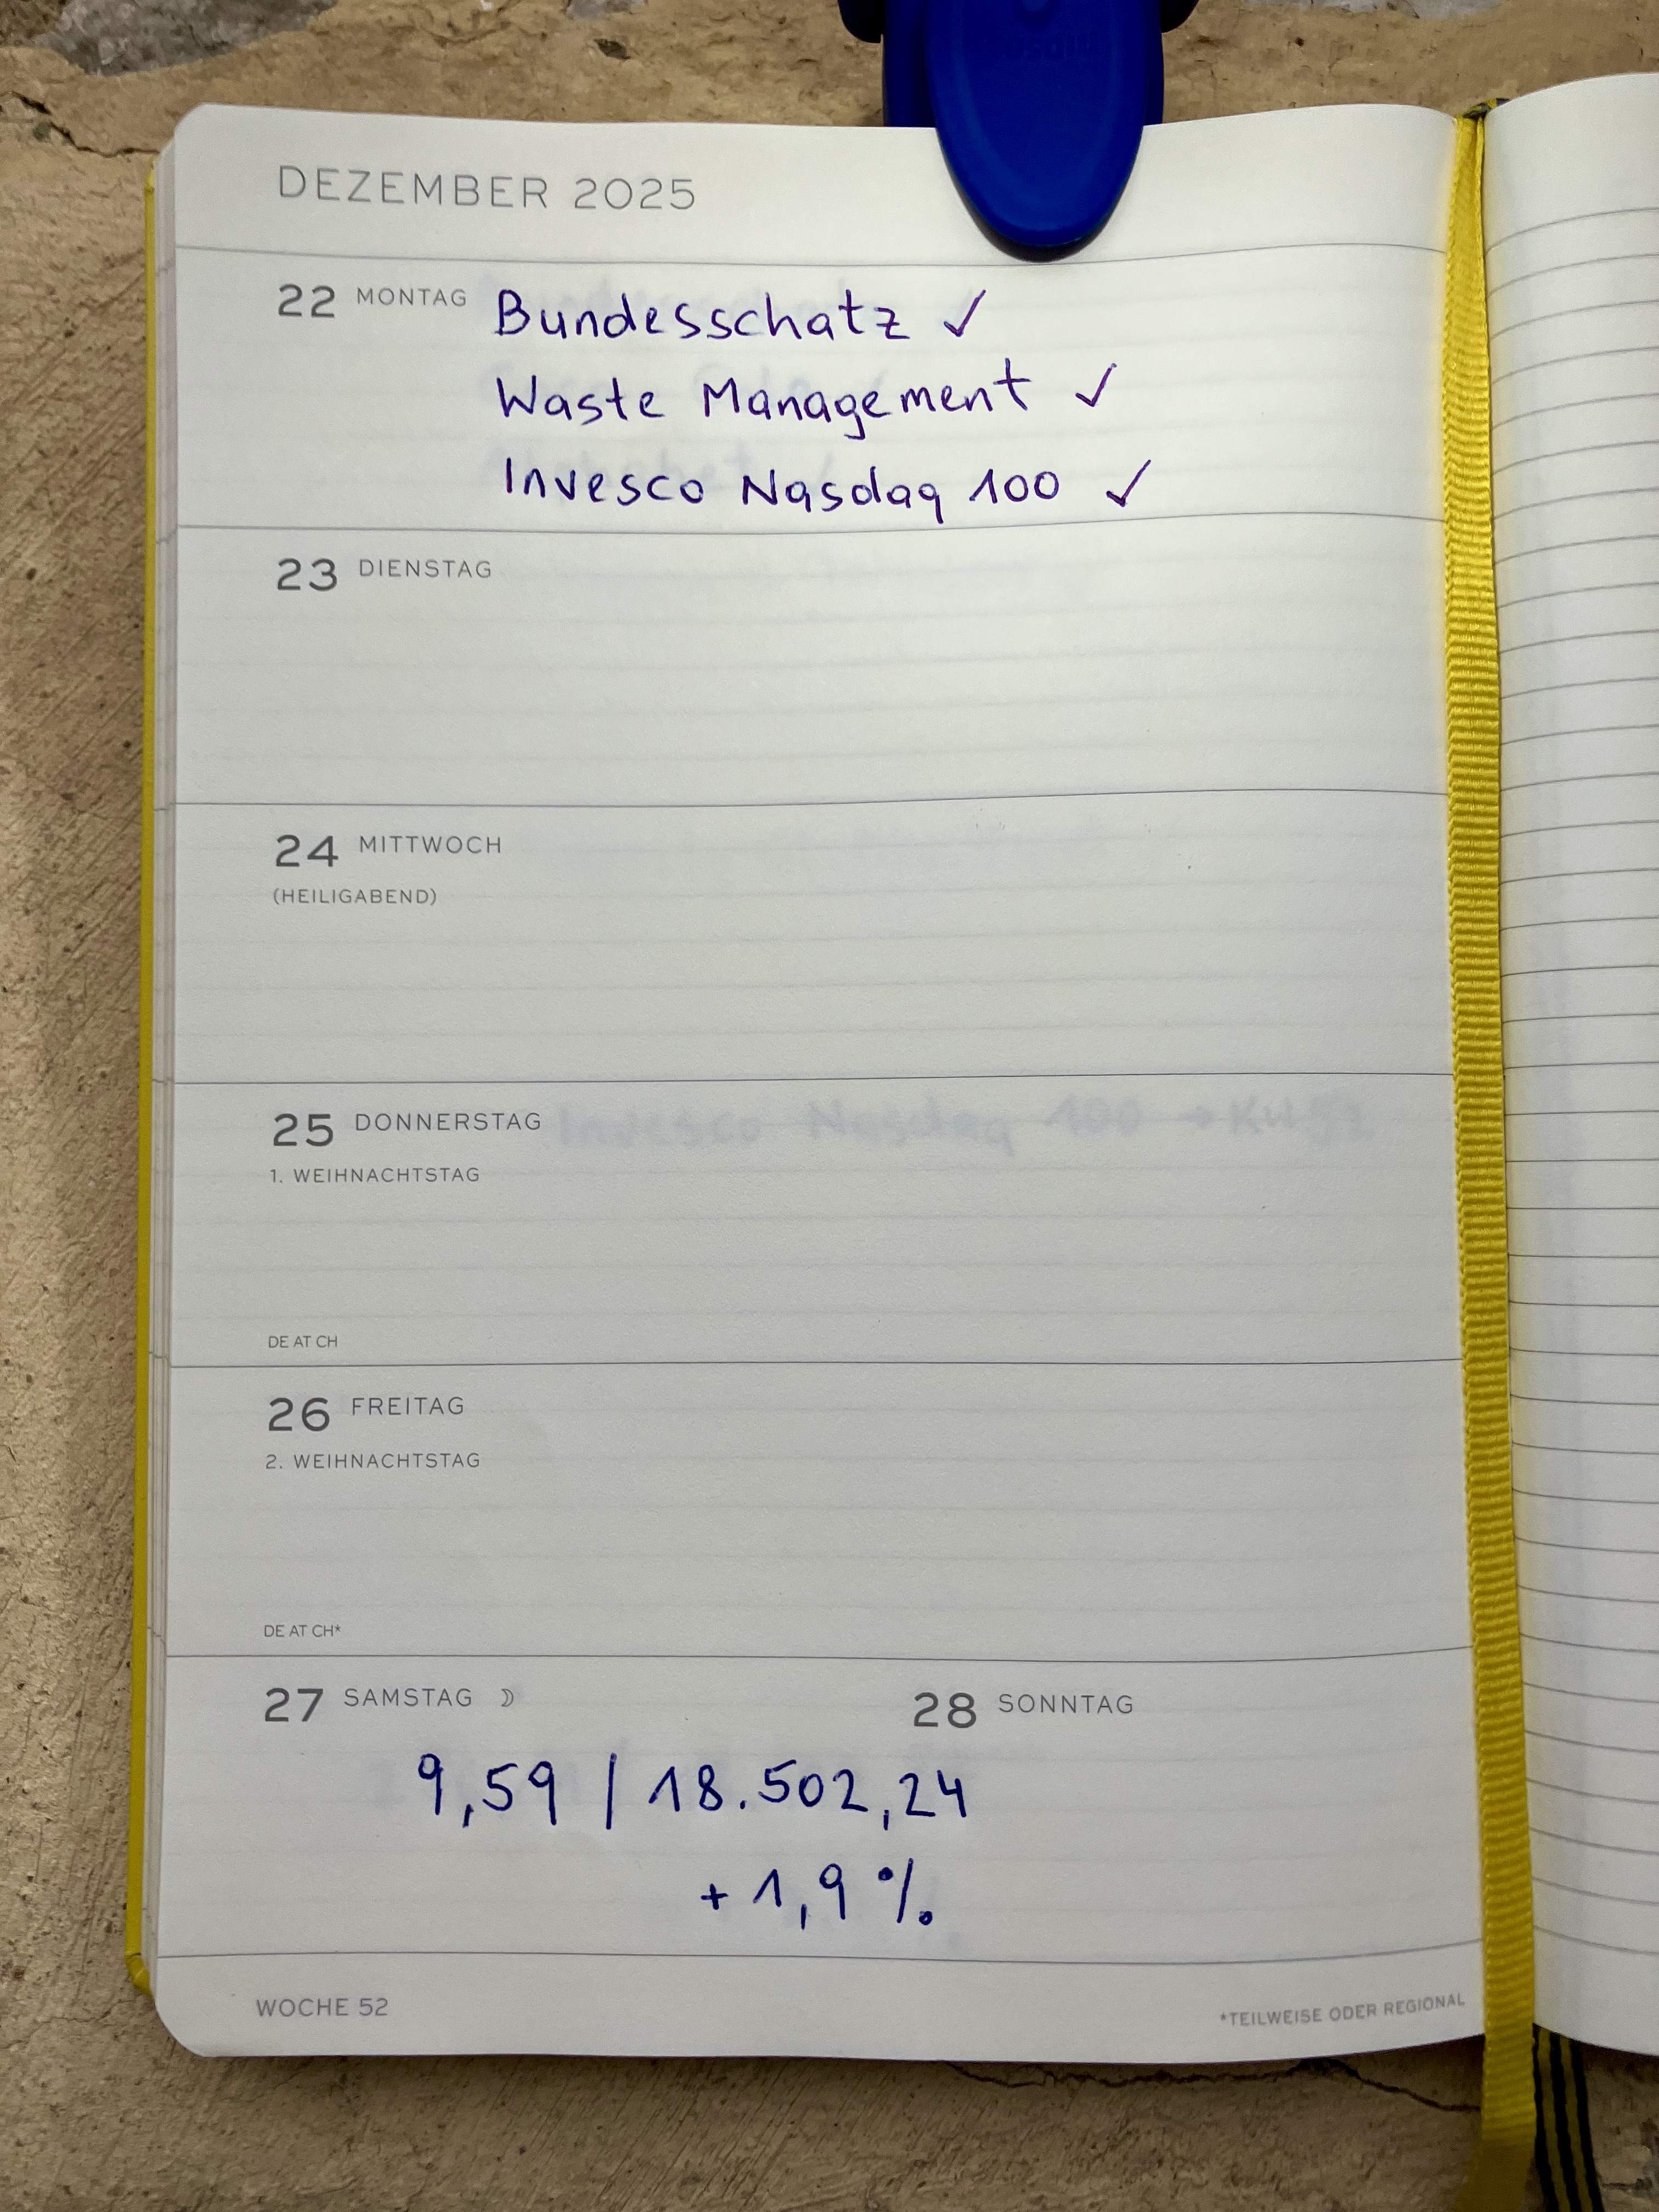 DEZEMBER 2025
22 MONTAG Bundesschatz ✓
Waste Management ✓
Invesco Nasdaq 100 ✓
23 DIENSTAG
24 MITTWOCH
(HEILIGABEND)
25 DONNERSTAG Invesco Nasdaq 100 →
1. WEIHNACHTSTAG
DE AT CH
26 FREITAG
2. WEIHNACHTSTAG
DE AT CH*
27 SAMSTAG ☽ 28 SONNTAG
9,59 / 18.502,24
+ 1,9 %
WOCHE 52 *TEILWEISE ODER REGIONAL